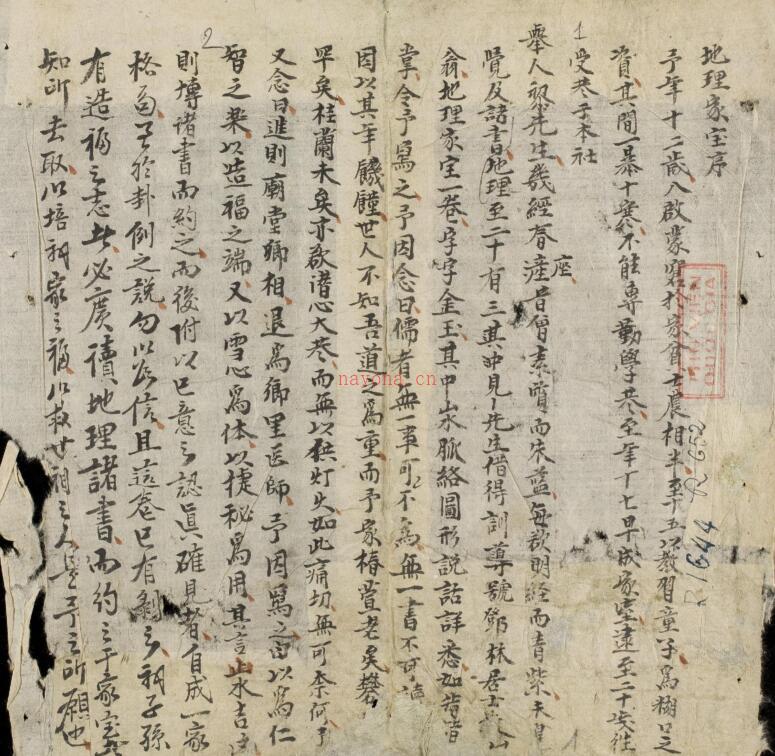 地理家宝序
予年十二歲入啟蒙窓於家貧士農相半至十五以教習童子為糊口之
資其間一暴十寒不能專勤學卷至年十七早成家室遠至二十岁往
受卷于本社
舉人黎先生幾經春座昔曾素質而朱藍每欲明經而青紫未
覽及諸書地理至二十有三其中見先生借得訓導號鄧林居士
翁地理家宝一卷字字金玉其中山水脈絡圖形説話詳悉如指
掌令予寫之予因念曰儒者無一事可不為無一書不可讀
因以其年饑饉世人不知吾道之為重而予家椿萱老矣
罕矣桂蘭未矣亦欲潜心大卷而無以供灯火如此痛切無可奈何予
又念曰進則廟堂卿相退為鄉里医師予因寫之由以為仁
智之樂以造福之端又以雪心為体以捷秘為用其言山水吉凶
則博諸書而約之而後附以己意之認真確見者自成一家
格自于於卦例之說勿以為信且這卷已有剩之祠子孫
有造福之志者必廣讀地理諸書而約之于家宝
知所去取以培祠家之福以救世祠之人是予之所願也
1
2
R 1644
R 652
nayona.cn